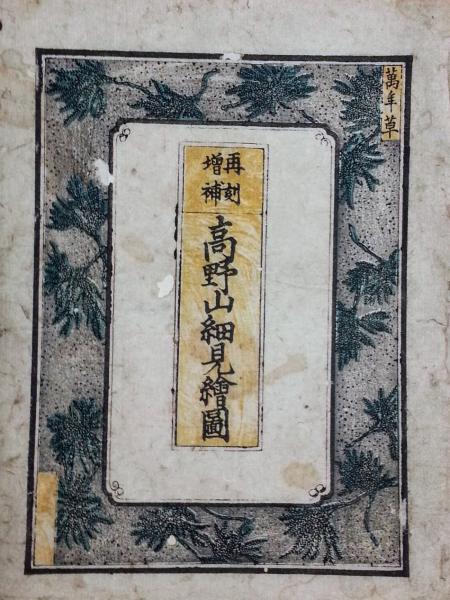 萬年草
再刻
增補
高野山細見繪圖